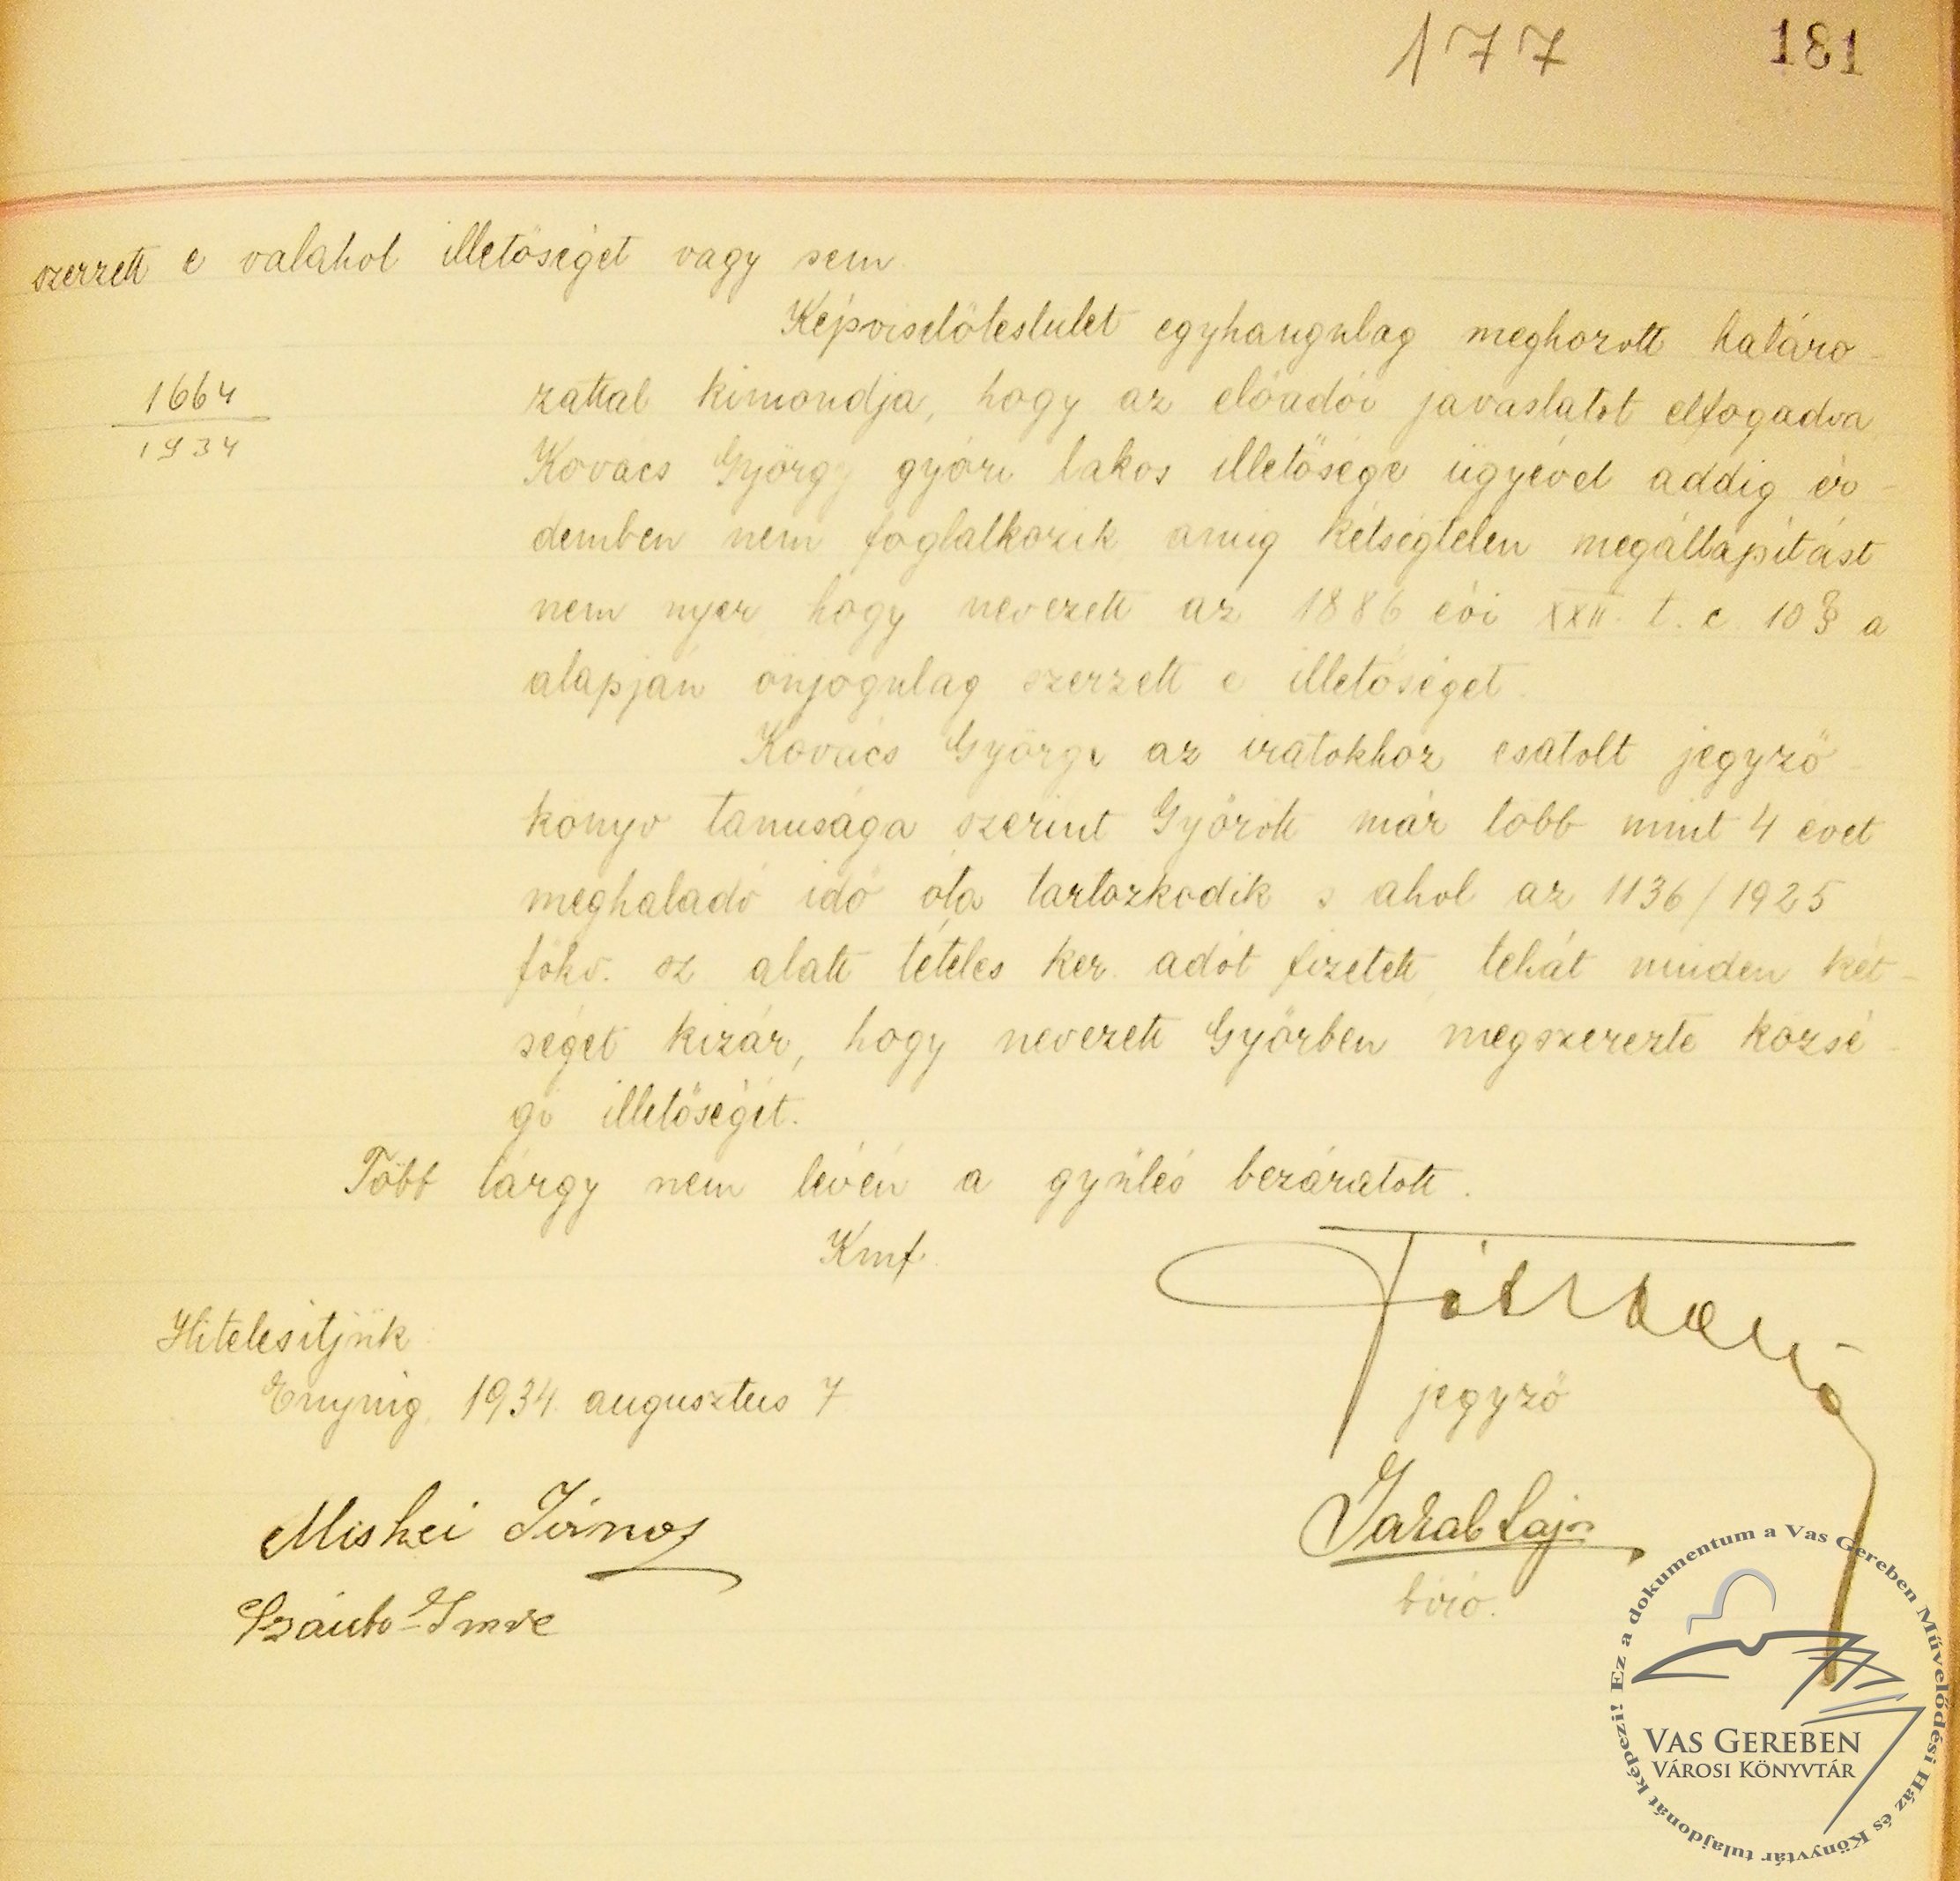 177 181
szerzett e valahol illetőséget vagy sem
Képviselőtestület egyhangulag meghozott határo-
1664
1934
zattal kimondja, hogy az előadói javaslatot elfogadva
Kovács György győri lakos illetősége ügyével addig ér-
demben nem foglalkozik amig kétségtelen megállapítást
nem nyer, hogy nevezett az 1886 évi XXII. t. c. 10 § a
alapján önjogulag szerzett e illetőséget.
Kovács György az iratokhoz csatolt jegyző-
könyv tanusága szerint Győrött már több mint 4 évet
meghaladó idő óta tartozkodik s ahol az 1136/1925
főkv. sz. alatt tételes ker. adót fizetett, tehát minden két-
séget kizár, hogy nevezett Győrben megszerezte közsé-
gi illetőségét.
Több tárgy nem lévén a gyülés bezáratott.
Kmf.
Hitelesitjük:
Enying, 1934. augusztus 7
jegyző
Miskei János
Jarab Lajos
Szántó Imre
biró.
Ez a dokumentum a Vas Gereben Művelődési Ház és Könyvtár tulajdonát képezi!
VAS GEREBEN
VÁROSI KÖNYVTÁR